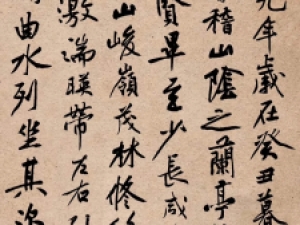 九年歲在癸丑暮
稽山陰之蘭亭
賢畢至少長咸
山峻嶺茂林修
激湍暎帶左右引
曲水列坐其次